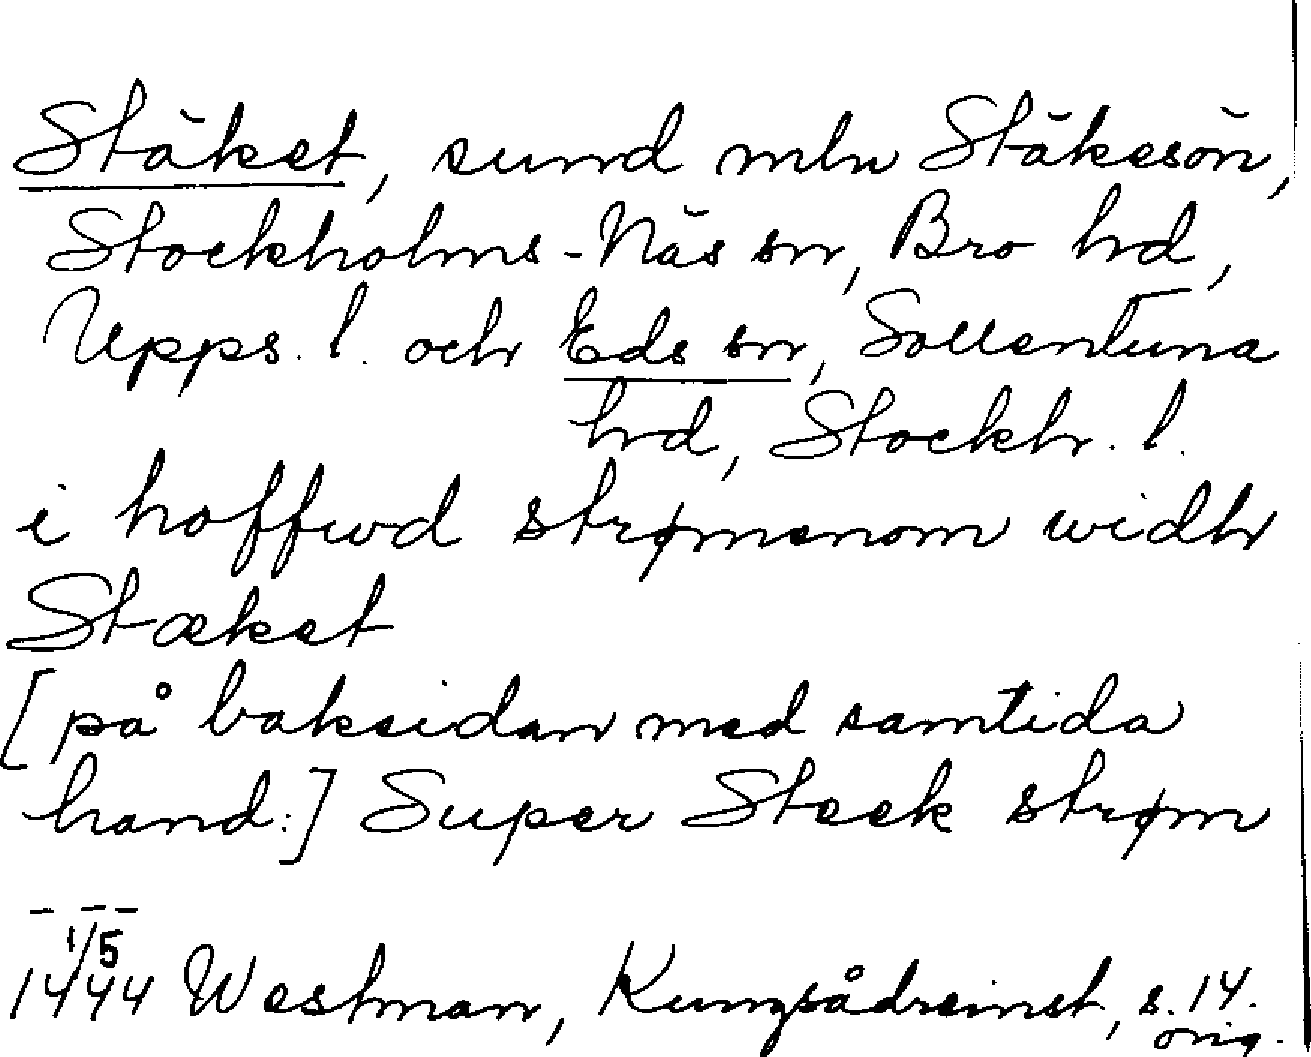 Stäket, sund mln Stäkesön,
Stockholms-Näs sn, Bro hd,
Upps. l. och Eds sn, Sollentuna
hd, Stockh. l.
i hoffwd strømenom widh
Stæket
[på baksidan med samtida
hand:] Super Steek strøm
---
1444 1/5 Westman, Kungsådreinst, s. 14.
orig.